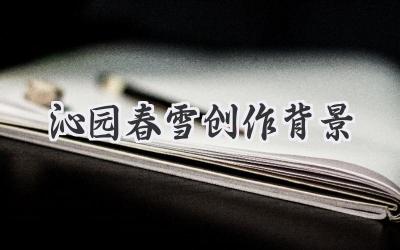 沁园春雪创作背景